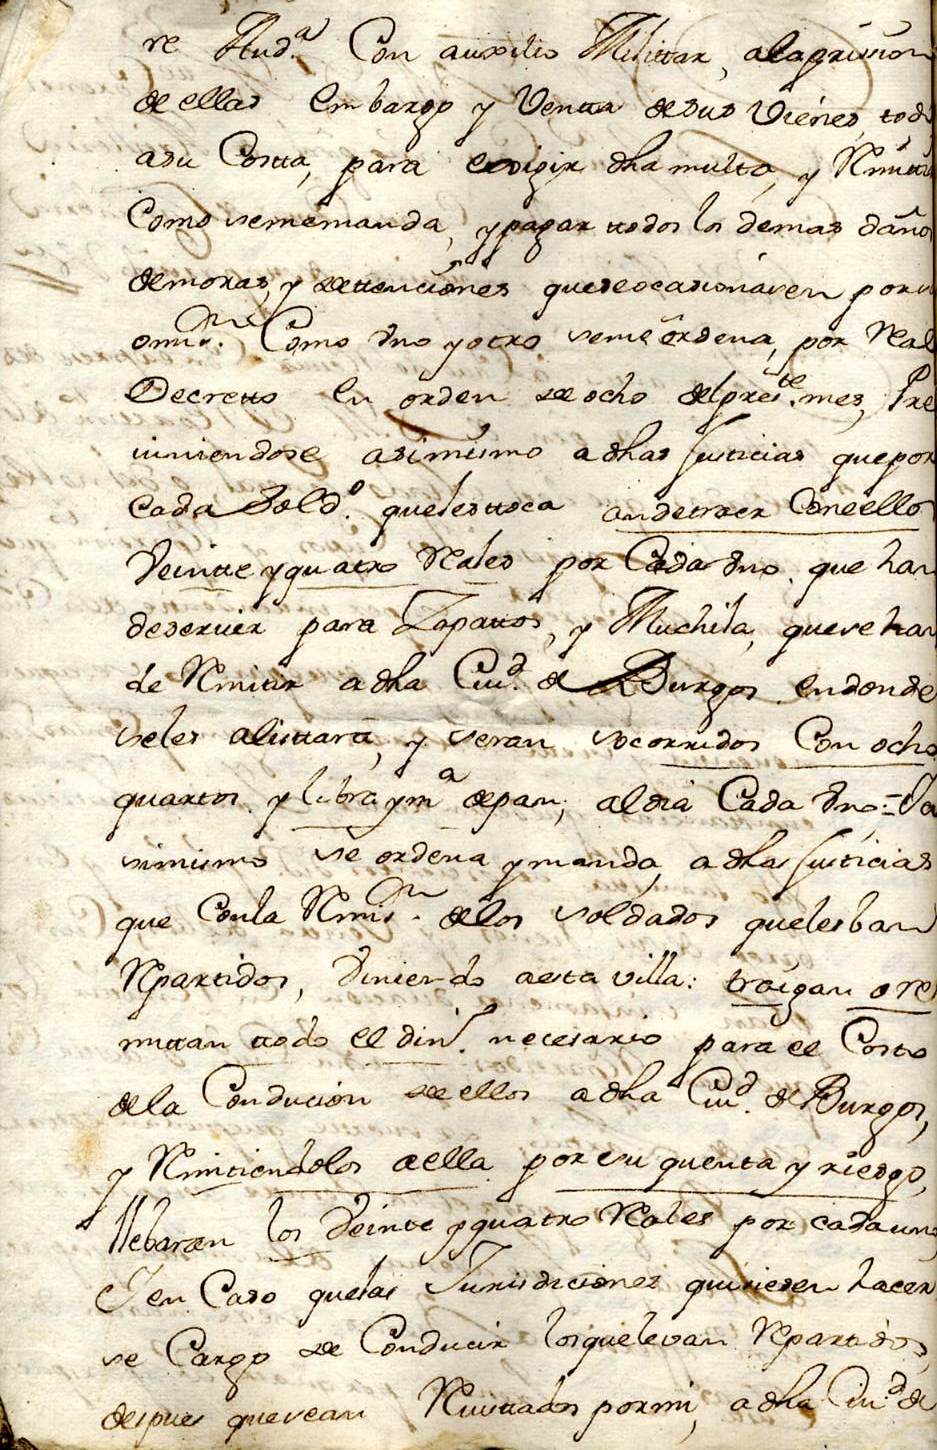 re Aud.ª Con auxilio Milittar, ala prission
de ellas Embargo y Ventta desus Vienes, todo
asu Costta, para exsigir dha multa, y Rmitir
Como sememanda, y pagar ttodos los demas daños
demoras, y dettenciones queseocasionasen por su
omis.on Como Vno y otro semeordena, por Real
Decretto En orden de ocho del pres.te mes, Pre
viniendose asimismo a dhas Justicias que por
Cada Sold.o quelesttoca andetraer Con ello
Veintte y quatro Reales por Cada Vno que han
deservir para Zapattos, y Muchila, quese han
de Rmitir a dha Ciu.d de Burgos endonde
seles alisttara, y seran socorridos Con ocho
quartos y libra y m.ª depan, al dia Cada Vno=Ya
simismo se ordena y manda, a dhas Justicias
que Conla Rmis.on delos soldados quelesban
Rpartidos, Viniendo aesta villa: traigan o re
mittan ttodo el din.o necesario para el Costo
dela Conducion de ellos a dha Ciu.d de Burgos,
y Rmitiendolos aella por su quenta y riesgo,
llebaran los Veinte y quatro Reales por cada uno,
Y en Caso quelas Jurisdiciones quisiesen hacer
se Cargo de Conducir los quelevan Rpartidos,
despues quesean Rvistados por mi, a dha Ciu.d de